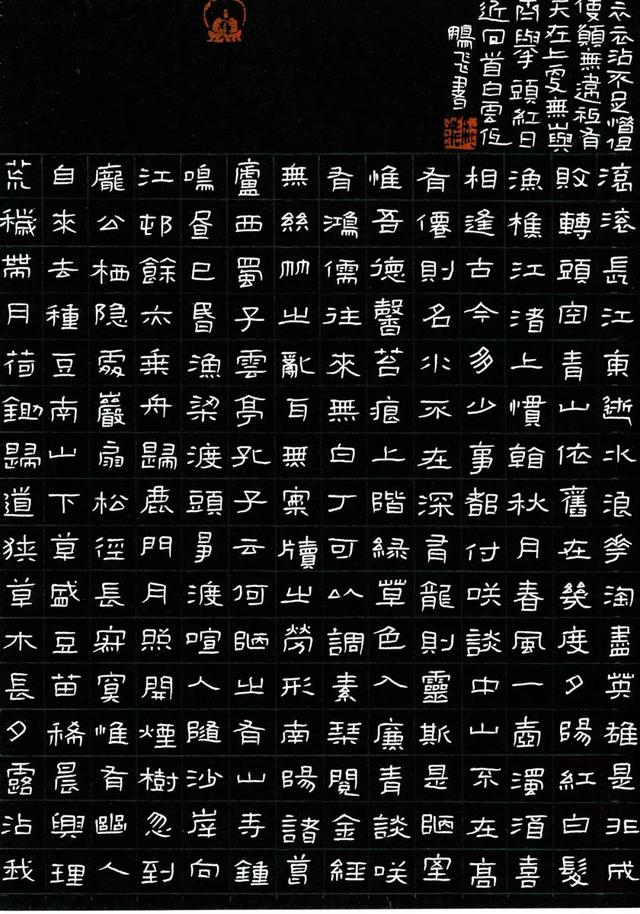 滾滾長江東逝水浪花淘盡英雄是非成
敗轉頭空青山依舊在幾度夕陽紅白髮
漁樵江渚上慣看秋月春風一壺濁酒喜
相逢古今多少事都付咲談中山不在高
有僊則名水不在深有龍則靈斯是陋室
惟吾德馨苔痕上階緑草色入廉青談咲
有鴻儒往來無白丁可以調素琴閲金經
無絲竹之亂耳無案牘之勞形南陽諸葛
廬西蜀子雲亭孔子云何陋之有山寺鍾
鳴昼已昏漁梁渡頭爭渡喧人隨沙岸向
江邨餘亦乗舟歸鹿門月照開煙樹忽到
龐公栖隐處巖扇松徑長寂寞惟有幽人
自來去種豆南山下草盛豆苗稀晨興理
荒穢帶月荷鋤歸道狹草木長夕露沾我
衣衣沾不足惜但
使願無違祗有
天在上更無與
齊舉頭紅日
近回首白雲低
鵬飛書